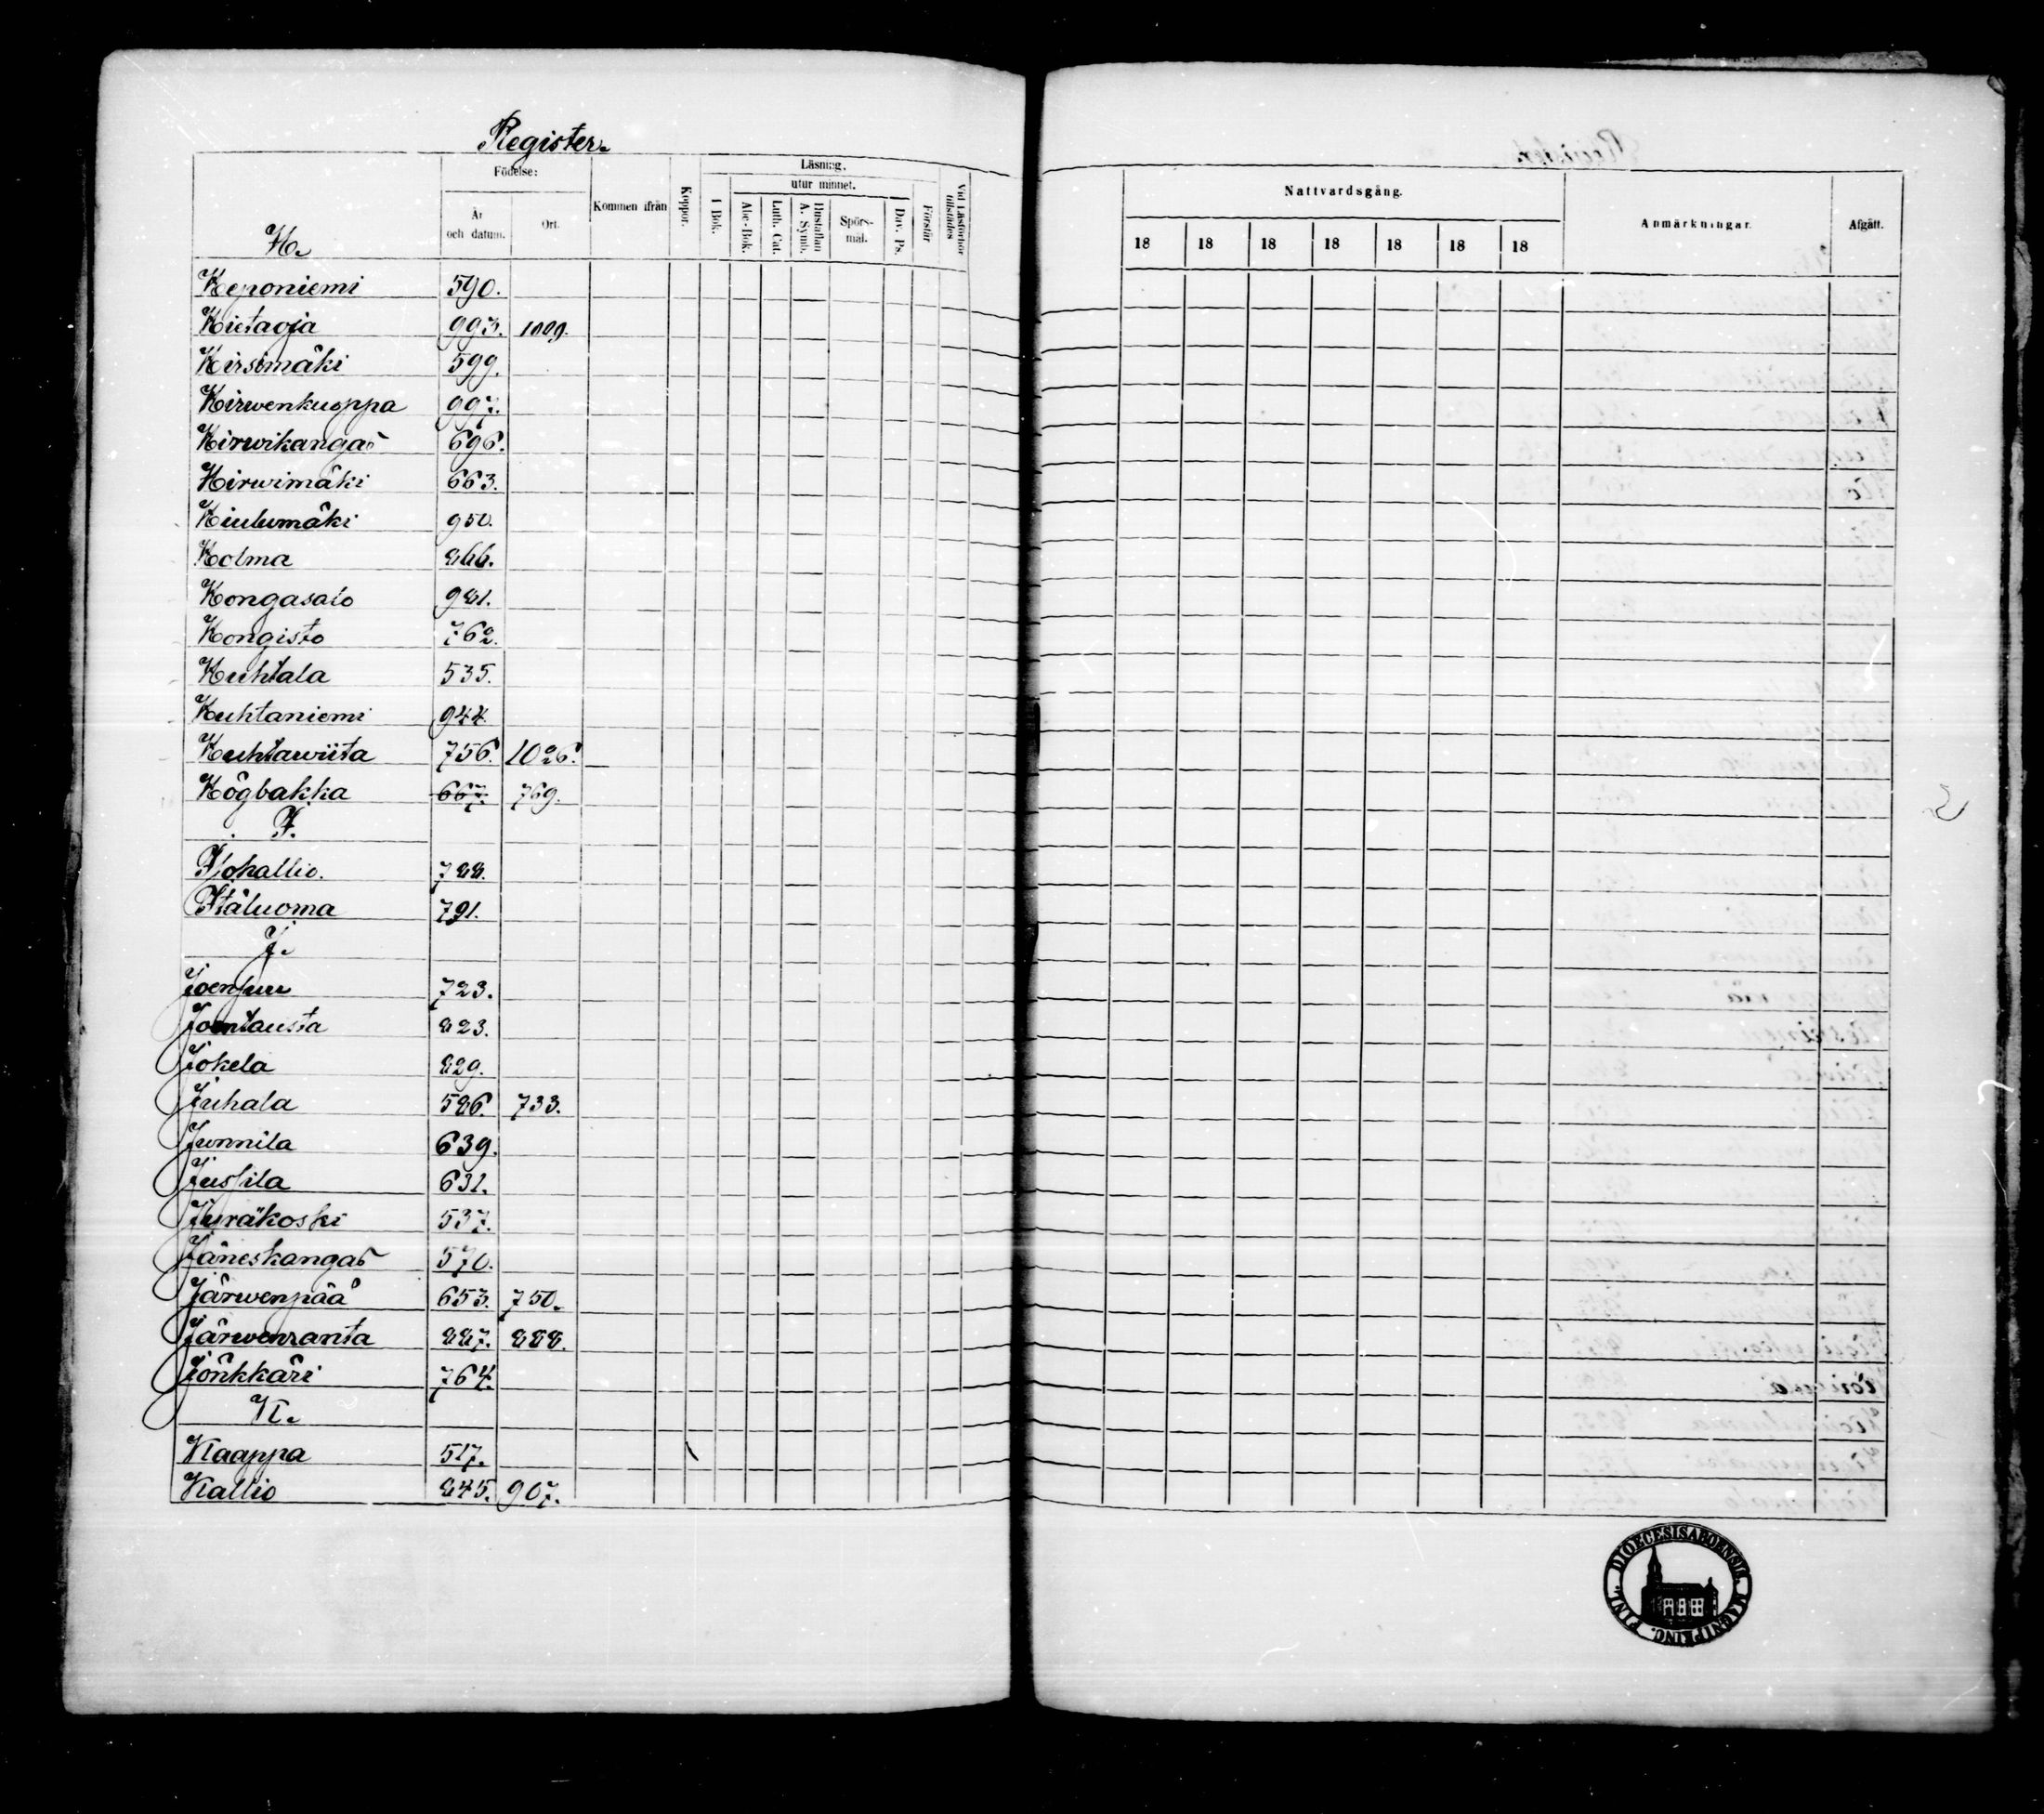 Register.
H.
Födelse:
År och datum.
Ort.
Kommen ifrån
Koppor.
Läsning,
I Bok.
utur minnet.
Abc-Bok.
Luth. Cat.
Hustaflan A. Symb.
Spörs-mål.
Dav. Ps.
Förstår
Vid Läsförhör tillstädes
Heponiemi 590.
Hietaoja 993. 1009.
Hirsimäki 599.
Hirwenkuoppa 997.
Hirwikangas 696.
Hirwimäki 663.
Hiulumäki 950.
Holma 866.
Hongasalo 981.
Hongisto 762.
Huhtala 535.
Huhtaniemi 944.
Huhtawiita 756. 1026.
Högbakka 667. 769.
I.
788.
Itäluoma 791.
J.
Joensuu 723.
Joentausta 823.
Jokela 829.
Juhala 586. 733.
Junnila 639.
Jussila 631.
Jyräkoski 537.
Jäneskangas 570.
Järwenpää 653. 750.
Järwenranta 887. 888.
Jönkkäri 764.
K.
Kaappa 517.
Kallio 845. 907.
Nattvardsgång.
18 18 18 18 18 18 18
Anmärkningar.
Afgått.